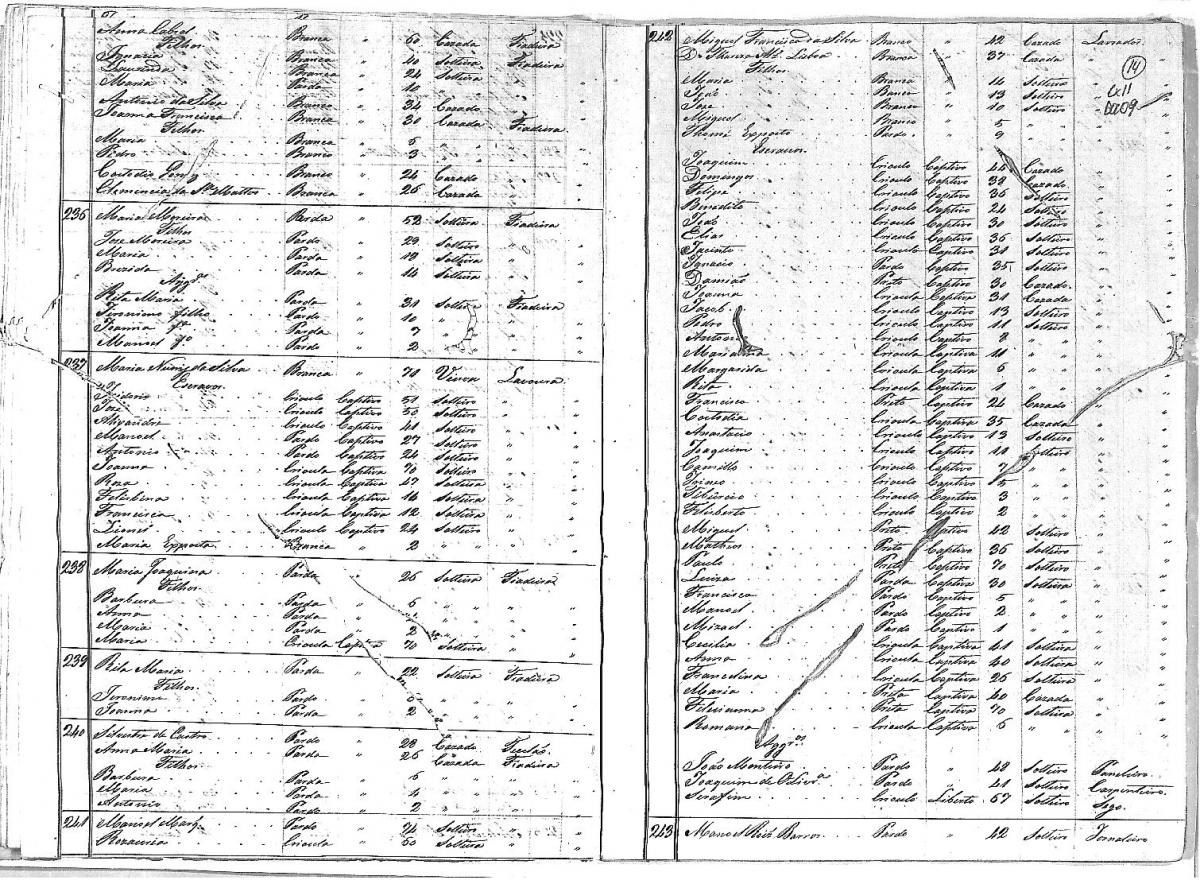 Anna Cabral Branca " 60 Cazada Fiadeira
Filhos
Ignacia Branca " 40 Solteira Fiadeira
Lourença Branca " 24 Solteira "
Maria Parda " 10 " "
Antonio da Silva Branco " 34 Cazado
Joanna Francisca Branca " 30 Cazada Fiadeira
Filhos
Maria Branca " 5 " "
Pedro Branco " 3 " "
Custodio Branco " 24 Cazado "
Clemencia de Mattos Branca " 26 Cazada "
236 Maria Moreira Parda " 52 Solteira Fiadeira
Filhos
Jose Moreira Pardo " 23 Solteiro "
Maria Parda " 19 Solteira "
Parda " 14 Solteira "
Agg.
Rita Maria Parda " 31 Solteira Fiadeira
Jeronimo filho Pardo " 10 " "
Joanna f.ª Parda " 7 " "
Manoel f.º Pardo " 2 " "
237 Maria Nunes da Silva Branca " 70 Viuva Lavoura
Escravos
Izidorio Crioulo Captivo 51 Solteiro "
Jose Crioulo Captivo 50 Solteiro "
Alexandre Crioulo Captivo 41 Solteiro "
Manoel Pardo Captivo 27 Solteiro "
Antonio Pardo Captivo 24 Solteiro "
Joanna Crioula Captiva 70 Solteira "
Roza Crioula Captiva 47 Solteira "
Felisbina Crioula Captiva 16 Solteira "
Francisca Crioula Captiva 12 Solteira "
Crioulo Captivo 24 Solteiro "
Maria Exposta Branca " 2 " "
238 Maria Joaquina Parda " 26 Solteira Fiadeira
Filhos
Barbara Parda " 6 " "
Anna Parda " " "
Maria Parda " 2 " "
Maria Crioula Captiva 70 Solteira "
239 Rita Maria Parda " 22 Solteira Fiadeira
Filhos
Jeronimo Pardo " " "
Joanna Parda " 2 " "
240 Silvestre de Castro Pardo " 28 Cazado
Anna Maria Parda " 26 Cazada Fiadeira
Filhos
Barbara Parda " 6 " "
Maria Parda " 4 " "
Antonio Pardo " 2 " "
241 Manoel Pardo " 74 Solteiro "
Rozauria Crioula " 50 Solteira "
242 Miguel Francisco da Silva Branco " 42 Cazado Lavrador
D. Thereza M.ª Lisboa Branca " 37 Cazada "
Filhos
Maria Branca " 14 Solteira "
João Branco " 13 Solteiro "
Jose Branco " 10 Solteiro "
Miguel Branco " 5 " "
Thomé Exposto Pardo " 9 " "
Escravos
Joaquim Crioulo Captivo 45 Cazado "
Domingos Crioulo Captivo 38 Cazado "
Felipe Crioulo Captivo 36 Solteiro "
Benedito Crioulo Captivo 24 Solteiro "
João Crioulo Captivo 30 Solteiro "
Elias Crioulo Captivo 36 Solteiro "
Jacinto Crioulo Captivo 31 Solteiro "
Ignacio Pardo Captivo 35 Solteiro "
Damião Preto Captivo 30 Cazado "
Joanna Crioula Captiva 31 Cazada "
Jacob Crioulo Captivo 13 Solteiro "
Pedro Crioulo Captivo 11 Solteiro "
Antonio Crioulo Captivo 8 " "
Marianna Crioula Captiva 11 " "
Margarida Crioula Captiva 6 " "
Rita Crioula Captiva 1 " "
Francisco Preto Captivo 24 Cazado "
Custodia Crioula Captiva 35 Cazada "
Anastacio Crioulo Captivo 13 Solteiro "
Joaquim Crioulo Captivo 11 Solteiro "
Camillo Crioulo Captivo 7 " "
Irineo Crioulo Captivo 5 " "
Tiburcio Crioulo Captivo 3 " "
Feliberto Crioulo Captivo 2 " "
Miguel Preto Captivo 42 Solteiro "
Matheus Preto Captivo 36 Solteiro "
Paulo Preto Captivo 70 Solteiro "
Luiza Parda Captiva 30 Solteira "
Francisco Pardo Captivo 5 " "
Manoel Pardo Captivo 2 " "
Mizael Pardo Captivo 1 " "
Cecilia Crioula Captiva 41 Solteira "
Anna Crioula Captiva 40 Solteira "
Francelina Crioula Captiva 26 Solteira "
Maria Preta Captiva 40 Cazada "
Preta Captiva 70 Solteira "
Romana Crioula Captiva 6 " "
Agg.os
João Monteiro Pardo " 48 Solteiro Paneleiro
Joaquim de Olivr.a Pardo " 41 Solteiro Carpinteiro
Serafim Crioulo Liberto 67 Solteiro Sego
243 Manoel Barros Pardo " 42 Solteiro Jornaleiro
14
Cx11
D009